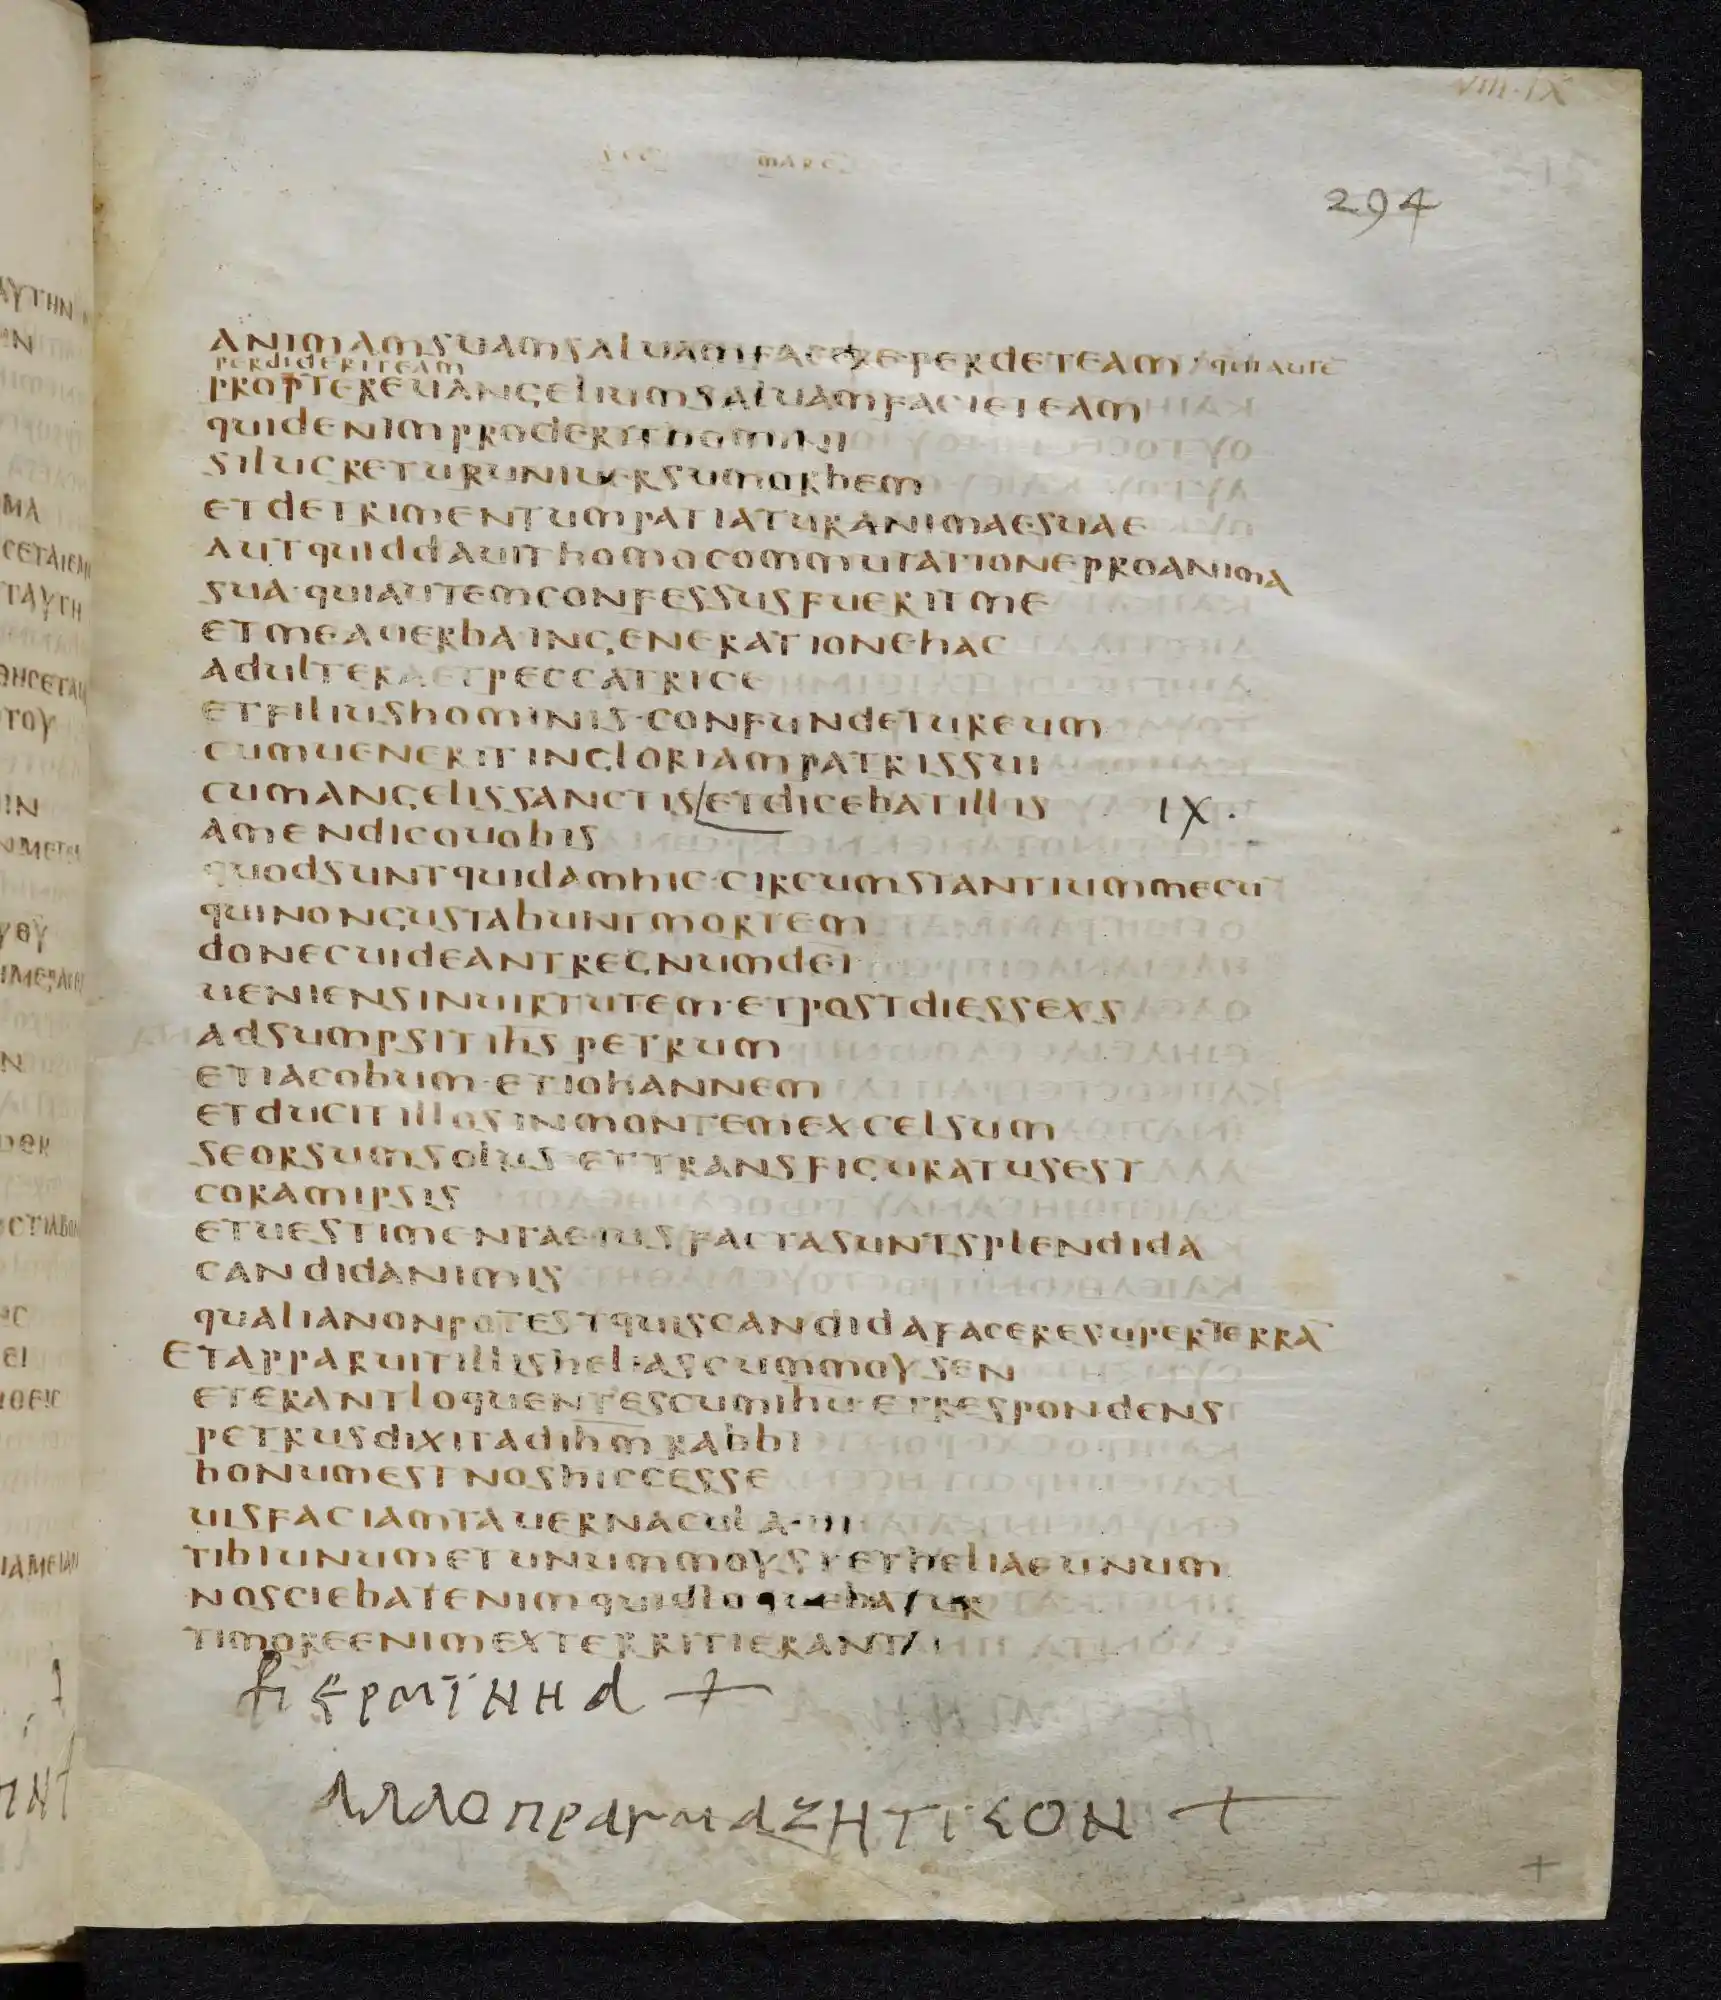 VIII-IX
SEC MARC
294
ANIMAM SUAM SALUAM FACERE PERDET EAM / QUI AUTĒ
PERDIDERIT EAM
PROPTER EUANGELIUM SALUAM FACIET EAM
QUID ENIM PRODERIT HOMINI
SI LUCRETUR UNIUERSUM ORBEM
ET DETRIMENTUM PATIATUR ANIMAE SUAE
AUT QUID DAUIT HOMO COMMUTATIONE PRO ANIMA
SUA · QUI AUTEM CONFESSUS FUERIT ME
ET MEA UERBA IN GENERATIONE HAC
ADULTERA ET PECCATRICE
ET FILIUS HOMINIS · CONFUNDETUR EUM
CUM UENERIT IN GLORIAM PATRIS SUI
CUM ANGELIS SANCTIS / ET DICEBAT ILLIS IX ·
AMEN DICO UOBIS
QUOD SUNT QUIDAM HIC · CIRCUMSTANTIUM MECŪ
QUI NON GUSTABUNT MORTEM
DONEC UIDEANT REGNUM DEI
UENIENS IN UIRTUTEM · ET POST DIES SEXS
ADSUMPSIT IHS PETRUM
ET IACOBUM · ET IOHANNEM
ET DUCIT ILLOS IN MONTEM EXCELSUM
SEORSUM SOLUS · ET TRANSFIGURATUS EST
CORAM IPSIS
ET UESTIMENTA EIUS FACTA SUNT SPLENDIDA
CANDIDA NIMIS
QUALIA NON POTEST QUIS CANDIDA FACERE SUPER TERRĀ
ET APPARUIT ILLIS HELIAS CUM MOYSEN
ET ERANT LOQUENTES CUM IHU · ET RESPONDENS
PETRUS DIXIT AD IHM RABBI
BONUM EST NOS HIC CESSE
UIS FACIAM TABERNACULA · III
TIBI UNUM ET UNUM MOYSI ET HELIAE UNUM
NO SCIEBAT ENIM QUID LOQUEBATUR
TIMORE ENIM EXTERRITI ERANT /
ΕΡΜΙΝΗΑ +
ΑΛΛΟ ΠΡΑΓΜΑ ΖΗΤΙCΟΝ +